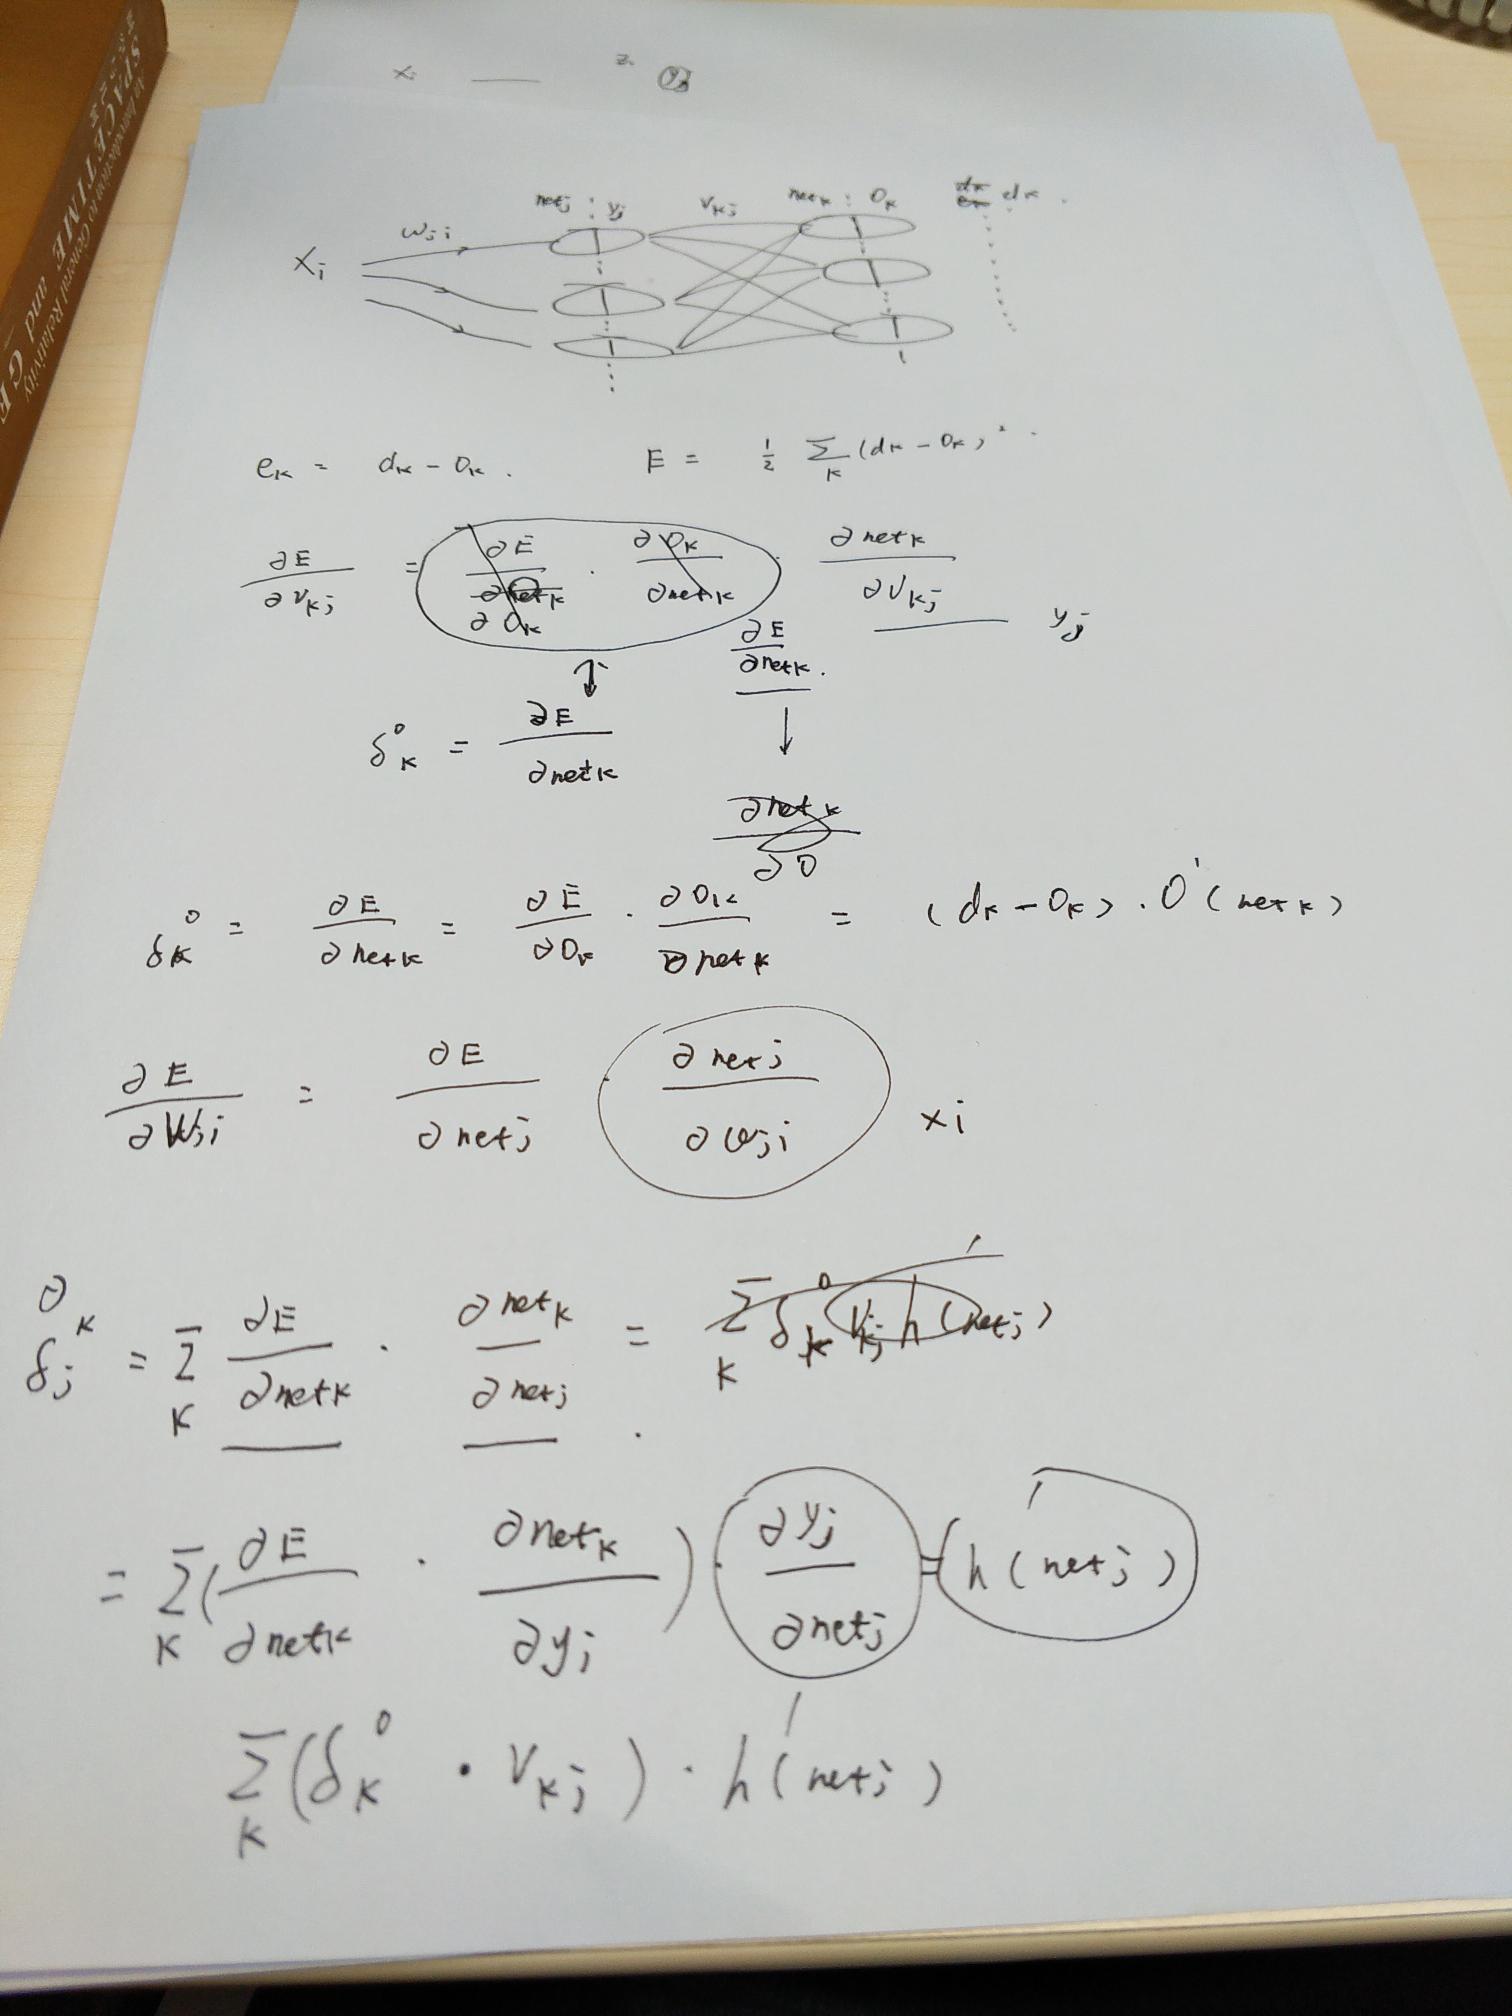 An Introduction to General Relativity
SPACETIME and GE
x
z
y
net_j : y_j v_kj net_k : O_k d_k
x_i w_ji
e_k = d_k - O_k . E = 1/2 Σ_k (d_k - O_k)² .
∂E/∂v_kj = ∂E/∂O_k · ∂O_k/∂net_k · ∂net_k/∂v_kj y_j
∂E/∂net_k .
↕ ↓
δ_k^o = ∂E/∂net_k
∂net_k/∂O
δ_k^o = ∂E/∂net_k = ∂E/∂O_k · ∂O_k/∂net_k = (d_k - O_k) · O'(net_k)
∂E/∂w_ji = ∂E/∂net_j ∂net_j/∂w_ji x_i
δ_j = Σ_k ∂E/∂net_k · ∂net_k/∂net_j = Σ_k δ_k^o v_kj h'(net_j)
= Σ_k (∂E/∂net_k · ∂net_k/∂y_j) · ∂y_j/∂net_j = h'(net_j)
Σ_k (δ_k^o · v_kj) · h'(net_j)